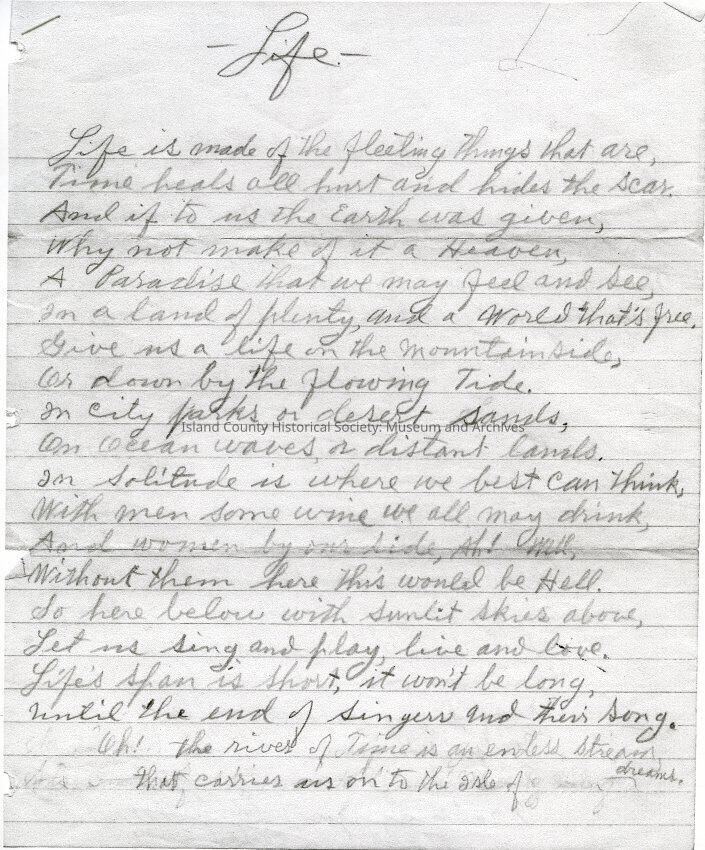 - Life. -
Life is made of the fleeting things that are,
Time heals all hurt and hides the scar.
And if to us the Earth was given,
Why not make of it a Heaven,
A Paradise that we may feel and see,
In a land of plenty, and a World that's free.
Give us a life on the mountainside,
Or down by the flowing Tide.
In city parks or desert sands,
Island County Historical Society: Museum and Archives
On Ocean waves, or distant lands.
In solitude is where we best can think,
With men some wine we all may drink,
And women by our side, Ah! Well,
Without them here this would be Hell.
So here below with sunlit skies above,
Let us sing and play, live and love.
Life's span is short, it won't be long,
Until the end of singers and their song.
Oh! the river of Time is an endless stream
that carries us on to the Isle of dreams.